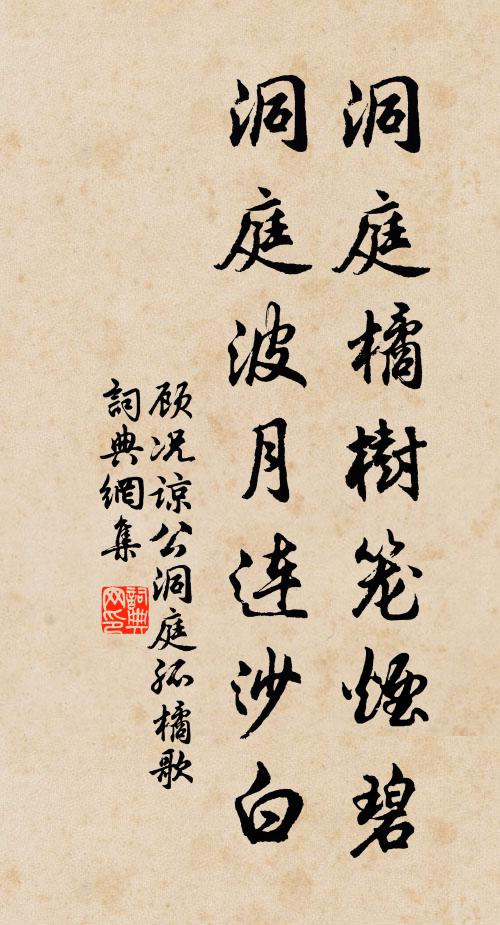 洞庭橘樹笼煙碧
洞庭波月连沙白
顾况谅公洞庭孤橘歌
詞典網集
詞典网印